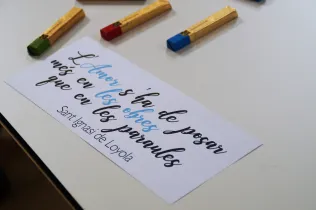 L'Amor s'ha de posar
més en les obres
que en les paraules
Sant Ignasi de Loyola